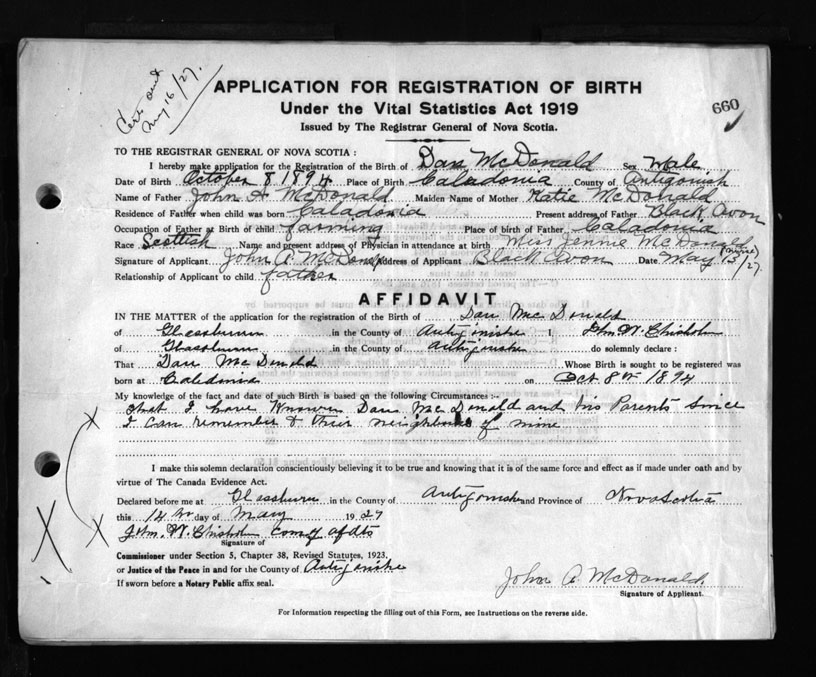 Cert sent
May 16/27.
APPLICATION FOR REGISTRATION OF BIRTH
Under the Vital Statistics Act 1919
660
Issued by The Registrar General of Nova Scotia.
TO THE REGISTRAR GENERAL OF NOVA SCOTIA :
I hereby make application for the Registration of the Birth of Dan McDonald Sex Male
Date of Birth October 8 1894 Place of Birth Caladonia County of Antigonish
Name of Father John A McDonald Maiden Name of Mother Katie McDonald
Residence of Father when child was born Caladonia Present address of Father Black Avon
Occupation of Father at Birth of child farming Place of birth of Father Caladonia
Race Scottish Name and present address of Physician in attendance at birth Miss Jennie McDonald (nurse)
Signature of Applicant John A. McDonald Address of Applicant Black Avon Date May 13/27.
Relationship of Applicant to child father
AFFIDAVIT
IN THE MATTER of the application for the registration of the Birth of Dan McDonald
of Glassburn in the County of Antigonishe I, John W. Chisholm
of Glassburn in the County of Antigonshe do solemnly declare :
That Dan McDonald Whose Birth is sought to be registered was
born at Caledonia on Oct 8th 1894
My knowledge of the fact and date of such Birth is based on the following Circumstances :-
that I have Known Dan McDonald and his Parents since
I can remember & their neighbours of mine
I make this solemn declaration conscientiously believing it to be true and knowing that it is of the same force and effect as if made under oath and by
virtue of The Canada Evidence Act.
Declared before me at Glassburn in the County of Antigonshe and Province of Nova Scotia
this 14th day of May 1927
John. W. Chisholm Com of afdts
Signature of
Commissioner under Section 5, Chapter 38, Revised Statutes, 1923,
or Justice of the Peace in and for the County of Antigonshe
If sworn before a Notary Public affix seal.
John A McDonald
Signature of Applicant.
For Information respecting the filling out of this Form, see Instructions on the reverse side.